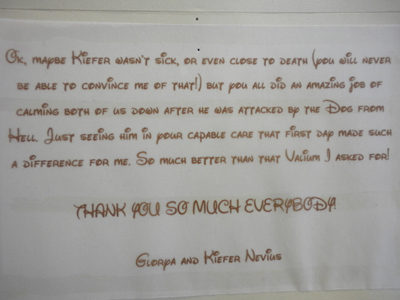 Ok, maybe Kiefer wasn't sick, or even close to death (you will never
be able to convince me of that!) but you all did an amazing job of
calming both of us down after he was attacked by the Dog from
Hell. Just seeing him in your capable care that first day made such
a difference for me. So much better than that Valium I asked for!
THANK YOU SO MUCH EVERYBODY!
Glorya and Kiefer Nevius